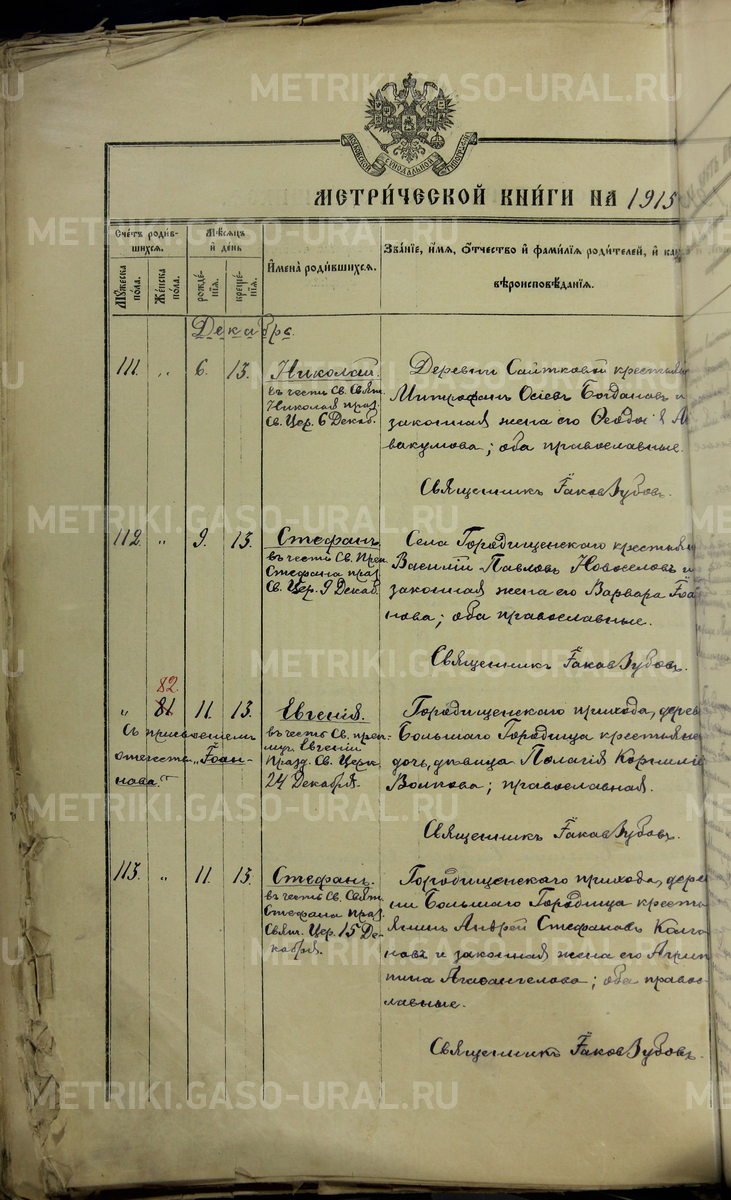 METRIKI.GASO-URAL.RU
МОСКОВСКОЙ СѴНОДАЛЬНОЙ ТИПОГРАФІИ
МЕТРИ́ЧЕСКОЙ КНИ́ГИ НА 1915
Сче́тъ роди́в-
шихся.
Му́жеска по́ла.
Же́нска по́ла.
Мѣ́сяцъ и́ день
рожде́-нїя.
креще́-нїя.
И҆мена̀ роди́вшихся.
Зва́нїе, и҆́мя, о҆́тчество и҆ фами́лїя роди́телей, и҆ как
вѣроисповѣ́данїя.
Декабрь
111. „ 6. 13. Николай.
въ честь Св. Свят.
Николая праз.
Св. Цер. 6 Декаб.
Деревни Сайтковой крестьян
Митрофанъ Осіевъ Богдановъ и
законная жена его Ѳеодосія Ав
вакумова; оба православные.
Священникъ Іаковъ Зубовъ.
112. „ 9. 13. Стефанъ.
въ честь Св. Преп.
Стефана праз.
Св. Цер. 9 Декаб.
Села Городищенскаго крестьян
Василій Павловъ Новоселовъ и
законная жена его Варвара Іоан
нова; оба православные.
Священникъ Іаковъ Зубовъ.
82.
„ 81 11. 13. Евгенія.
Съ присвоеніемъ
отечества „Іоан-
нова“.
въ честь Св. преп.
муч. Евгеніи
Празд. Св. Церк.
24 Декабря.
Городищенскаго прихода, дерев
Большаго Городища крестьянс
дочь, дѣвица Пелагія Корниліе
Волкова; православная.
Священникъ Іаковъ Зубовъ.
113. „ 11. 13. Стефанъ.
въ честь Св. Свят.
Стефана праз.
Свят. Цер. 15 Де-
кабря.
Городищенскаго прихода, дере
ни Большаго Городища кресть
янинъ Андрей Стефановъ Колга
новъ и законная жена его Агрип
пина Агаѳангелова; оба правос-
лавные.
Священникъ Іаковъ Зубовъ.